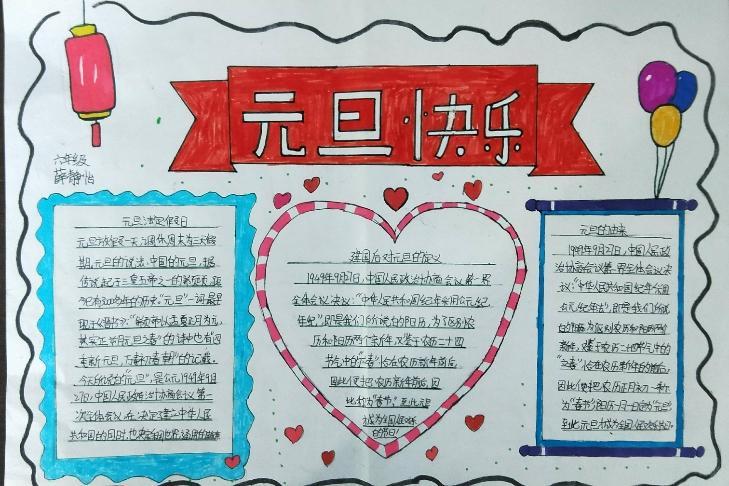 元旦快乐
六年级
薛静怡
元旦法定假日
元旦放假一天,与周休周末为三天假
期,元旦的说法,中国的元旦,据
传说起于三皇五帝之一的颛顼,距
今已有3000多年的历史"元旦"一词最早
现于《晋书》:
今天所说的"元旦",是公元1949年9月
27日,中国人民政治协商会议第一
次全体会议,在决定建立中华人民
共和国的同时,也决定
建国后对元旦的定义
1949年9月27日,中国人民政治协商会议第一界
全体会议决议:"中华人民共和国纪年采用公元纪
年法",即是我们所说的阳历,为了区别农
历和阳历两个新年,又鉴于农历二十四
节气中的"立春"恰在农历新年前后,
因此便把农历新年前后,因
此称为"春节",至此元旦
成为全国
的节日!
元旦的由来
1949年9月27日,中国人民政
治协商会议第一界全体会议决
议:"中华人民共和国纪年采用
公元纪年法",即是我们所说
的阳历为区别农历和阳历两个
新年,鉴于农历二十四节气中的
"立春"恰在农历新年的前后,
因此便把农历正月初一称
为"春节",阳历一月一日定为"元旦"
至此,元旦成为全国